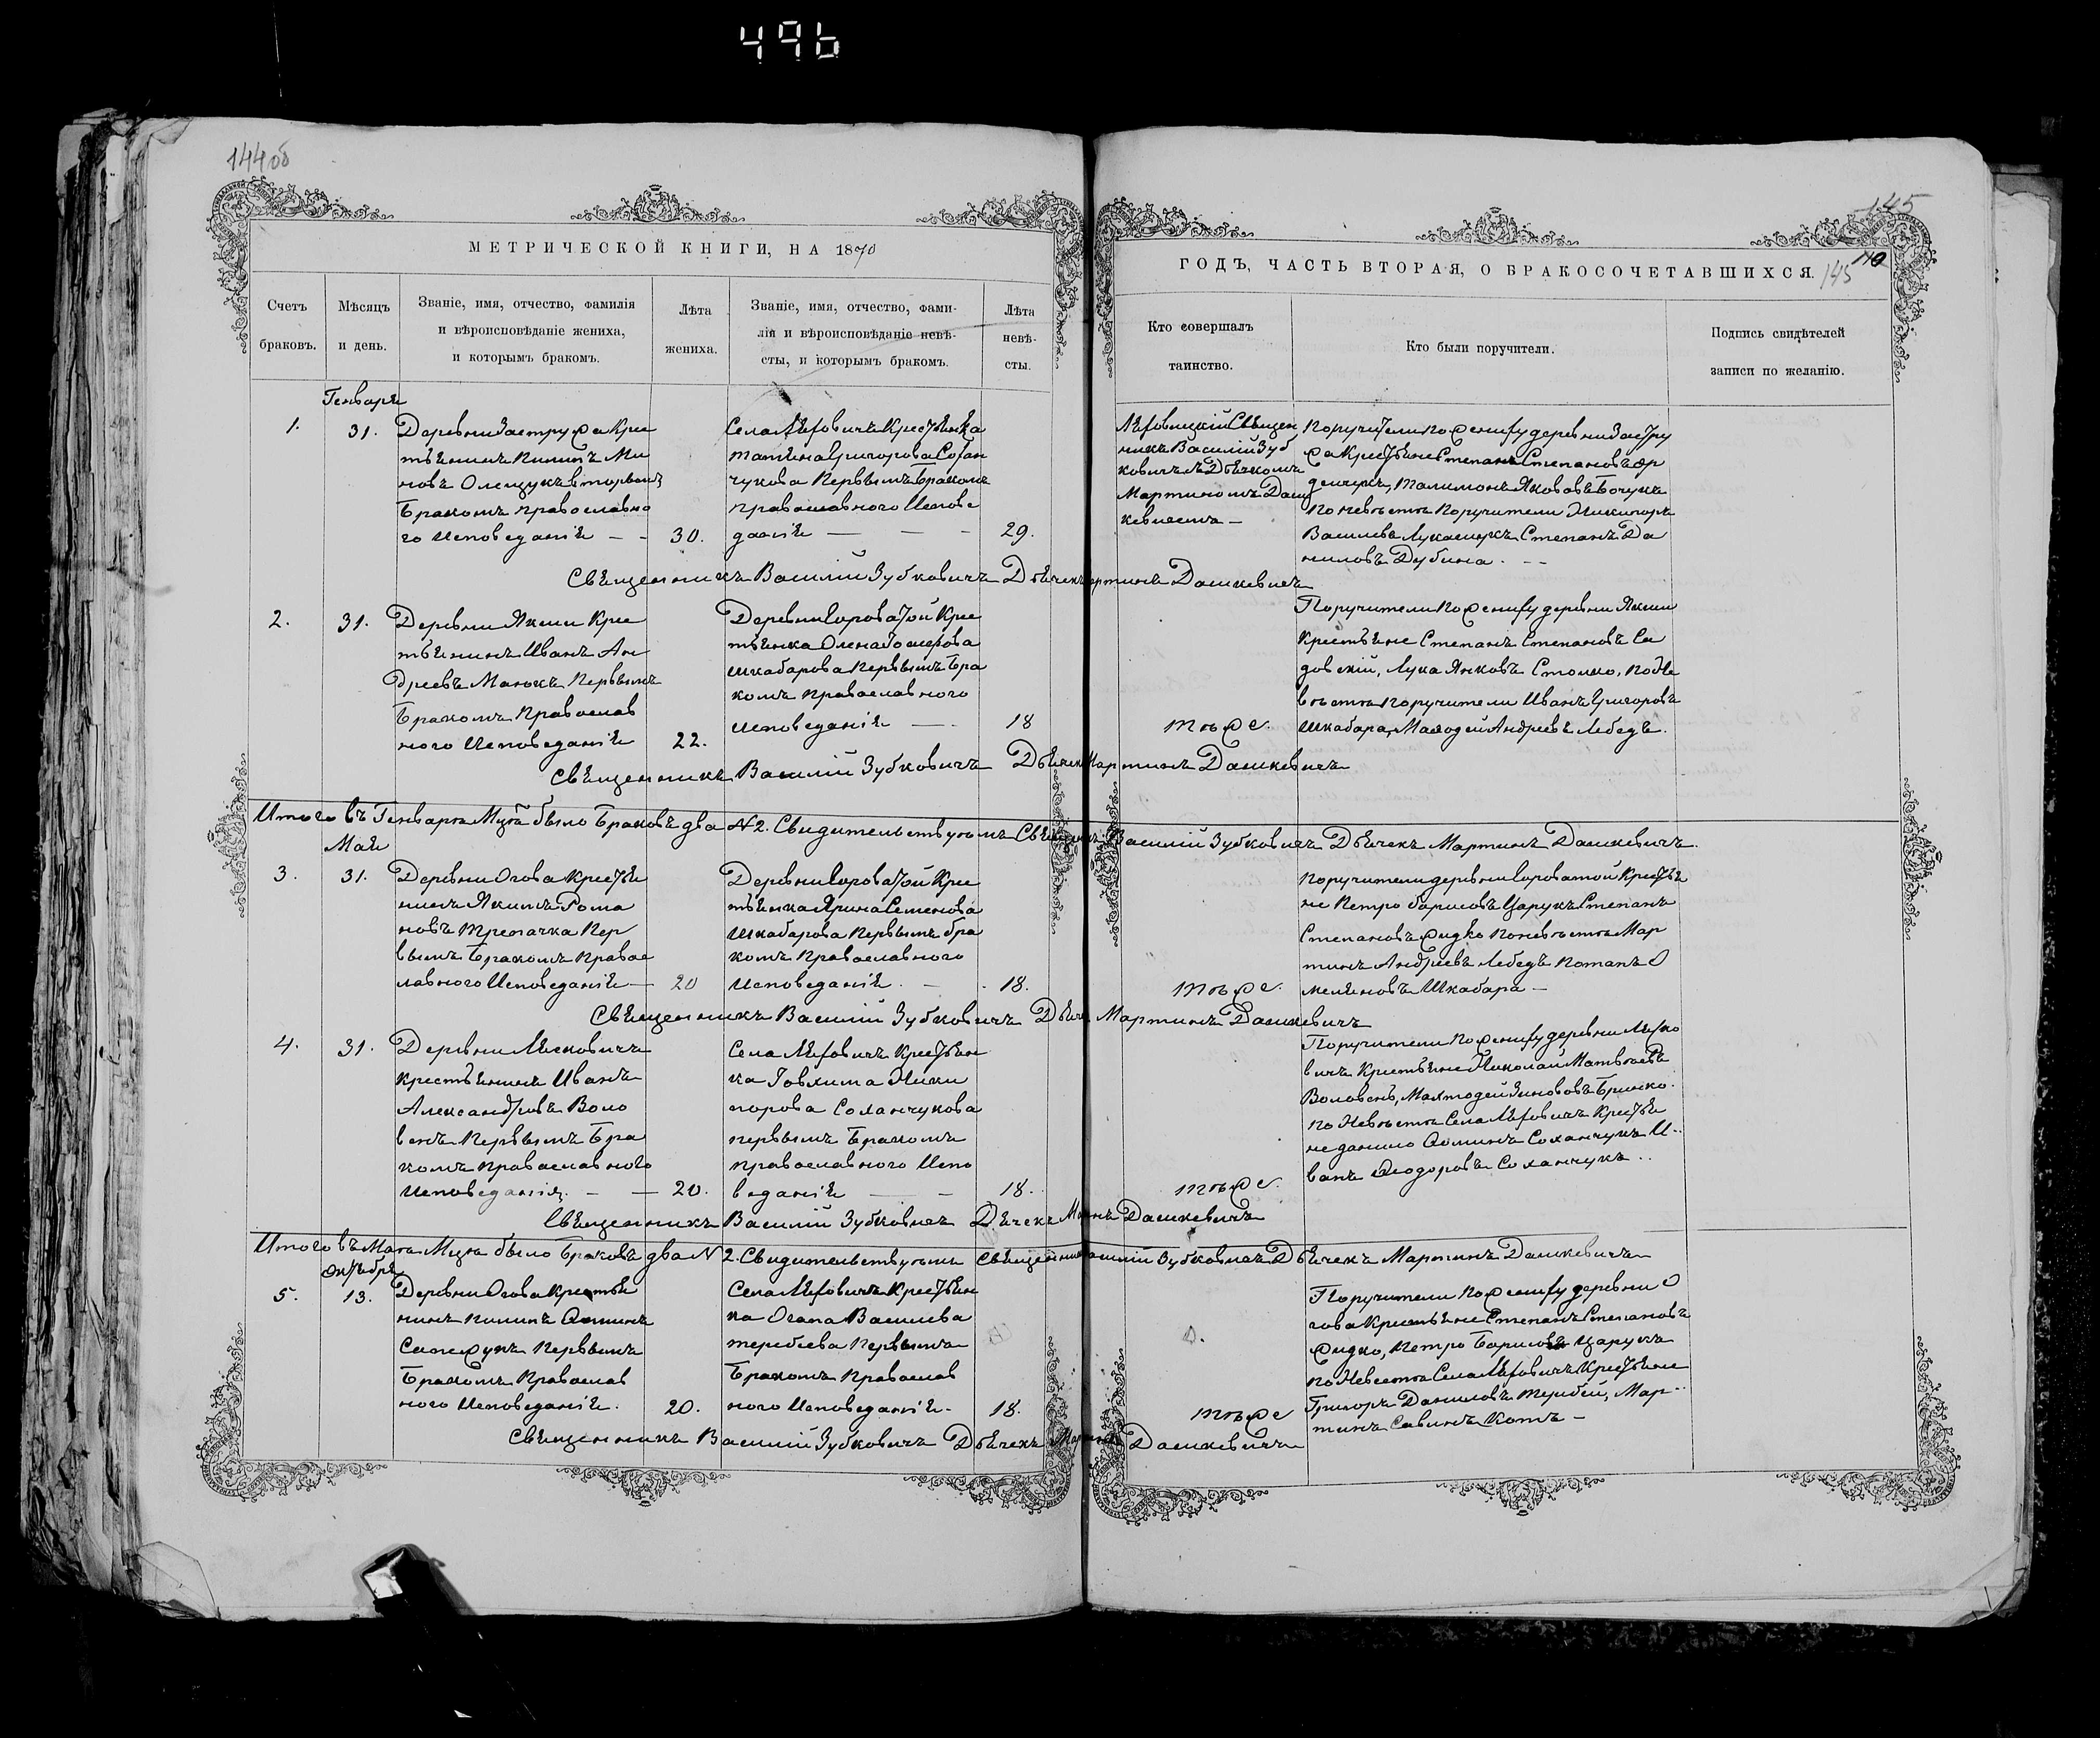 496
144 об
145
МЕТРИЧЕСКОЙ КНИГИ, НА 1870
ГОДЪ, ЧАСТЬ ВТОРАЯ, О БРАКОСОЧЕТАВШИХСЯ.
145
Счетъ браковъ.
Мѣсяцъ и день.
Званіе, имя, отчество, фамилія
и вѣроисповѣданіе жениха,
и которымъ бракомъ.
Лѣта
жениха.
Званіе, имя, отчество, фами-
лія и вѣроисповѣданіе невѣ-
сты, и которымъ бракомъ.
Лѣта
невѣ-
сты.
Кто совершалъ
таинство.
Кто были поручители.
Подпись свидѣтелей
записи по желанію.
Генваря
1.
31.
Деревни Застружа Крес
тьянинъ Пилипъ Ми
новъ Олещукъ вторымъ
Бракомъ православно
го Исповеданія
30.
Села Крестьянка
Татьяна Григорова Сохан
чукова Первымъ Бракомъ
православного Испове
данія
29.
Свещен
никъ Василій Зуб
ковичъ
Мартиномъ Даш
кевичемъ
Поручители по жениху деревни Застру
жа Крестьяне Степанъ Степановъ
Талимонъ Яковъ
по невѣста поручители Никипоръ
Васильевъ Лукашукъ Степанъ Да
ниловъ Дубина.
Священникъ Василій Зубковичъ Дьячекъ Мартинъ Дашкевичъ
2.
31.
Деревни Якши Крес
тьянинъ Иванъ Ан
дреевъ Манюкъ Первымъ
Бракомъ Православ
ного Исповеданія
22.
Деревни Гороватой Крес
тьянка Олена
Шкабарова Первымъ Бра
комъ православного
исповеданія
18
тоже
Поручители по жениху деревни Якши
крестьяне Степанъ Степановъ Са
довскій, Лука Янковъ Столько, по Не
вѣста поручители Иванъ Григоровъ
Шкабара, Андреевъ Лебедь.
Священникъ Василій Зубковичъ Дьячекъ Мартинъ Дашкевичъ
Итого въ Генваре Мцѣ было Браковъ два N2. Свидительствуютъ Священникъ Василій Зубковичъ Дьячекъ Мартинъ Дашкевичъ
Мая
3.
31.
Деревни Огова Крестья
нинъ Якимъ Рома
новъ Трепачка Пер
вымъ Бракомъ Правос
лавного Исповеданія
20
Деревни Гороватой Крес
тьянка Ярина Семенова
Шкабарова Первымъ бра
комъ православного
исповеданія
18.
тоже
Поручители деревни Гороватой Крестья
не Петро Борисовъ Царукъ Степанъ
Степановъ Жидко по невѣста Мар
тинъ Андреевъ Лебедь Потапъ О
мельяновъ Шкабара
Священникъ Василій Зубковичъ Дьячекъ Мартинъ Дашкевичъ
4.
31.
Деревни
крестьянинъ Иванъ
Александровъ Воло
венъ Первымъ Бра
комъ православного
исповеданія.
20.
Села Крестьян
ка Ники
порова Соханчукова
первымъ Бракомъ
православного Испо
веданія
18.
тоже
Поручители по жениху деревни
Крестьяне Николай Матвѣевъ
Воловенъ,
по Невѣста Села Крестья
не Соханчукъ И
ванъ Феодоровъ Соханчукъ
Священникъ Василій Зубковичъ Дьячекъ Мартинъ Дашкевичъ
Итого въ Мая Мцѣ было Браковъ два N 2. Свидительствуютъ Священникъ Василій Зубковичъ Дьячекъ Мартинъ Дашкевичъ
Октября
5.
13.
Деревни Огова Крестья
нинъ Пилипъ Фоминъ
Первымъ
Бракомъ Православ
ного Исповеданія.
20.
Села Крестьян
ка Огапа Васильева
Теребеева Первымъ
Бракомъ Православ
ного Исповеданія.
18.
тоже
Поручители по жениху деревни О
гова Крестьяне Степанъ Степановъ
Жидко, Петро Борисовъ Царукъ
по Невеста Села Крестьяне
Григоръ Даниловъ Теребей, Мар
тинъ Савинъ Котъ
Священникъ Василій Зубковичъ Дьячекъ Мартинъ Дашкевичъ